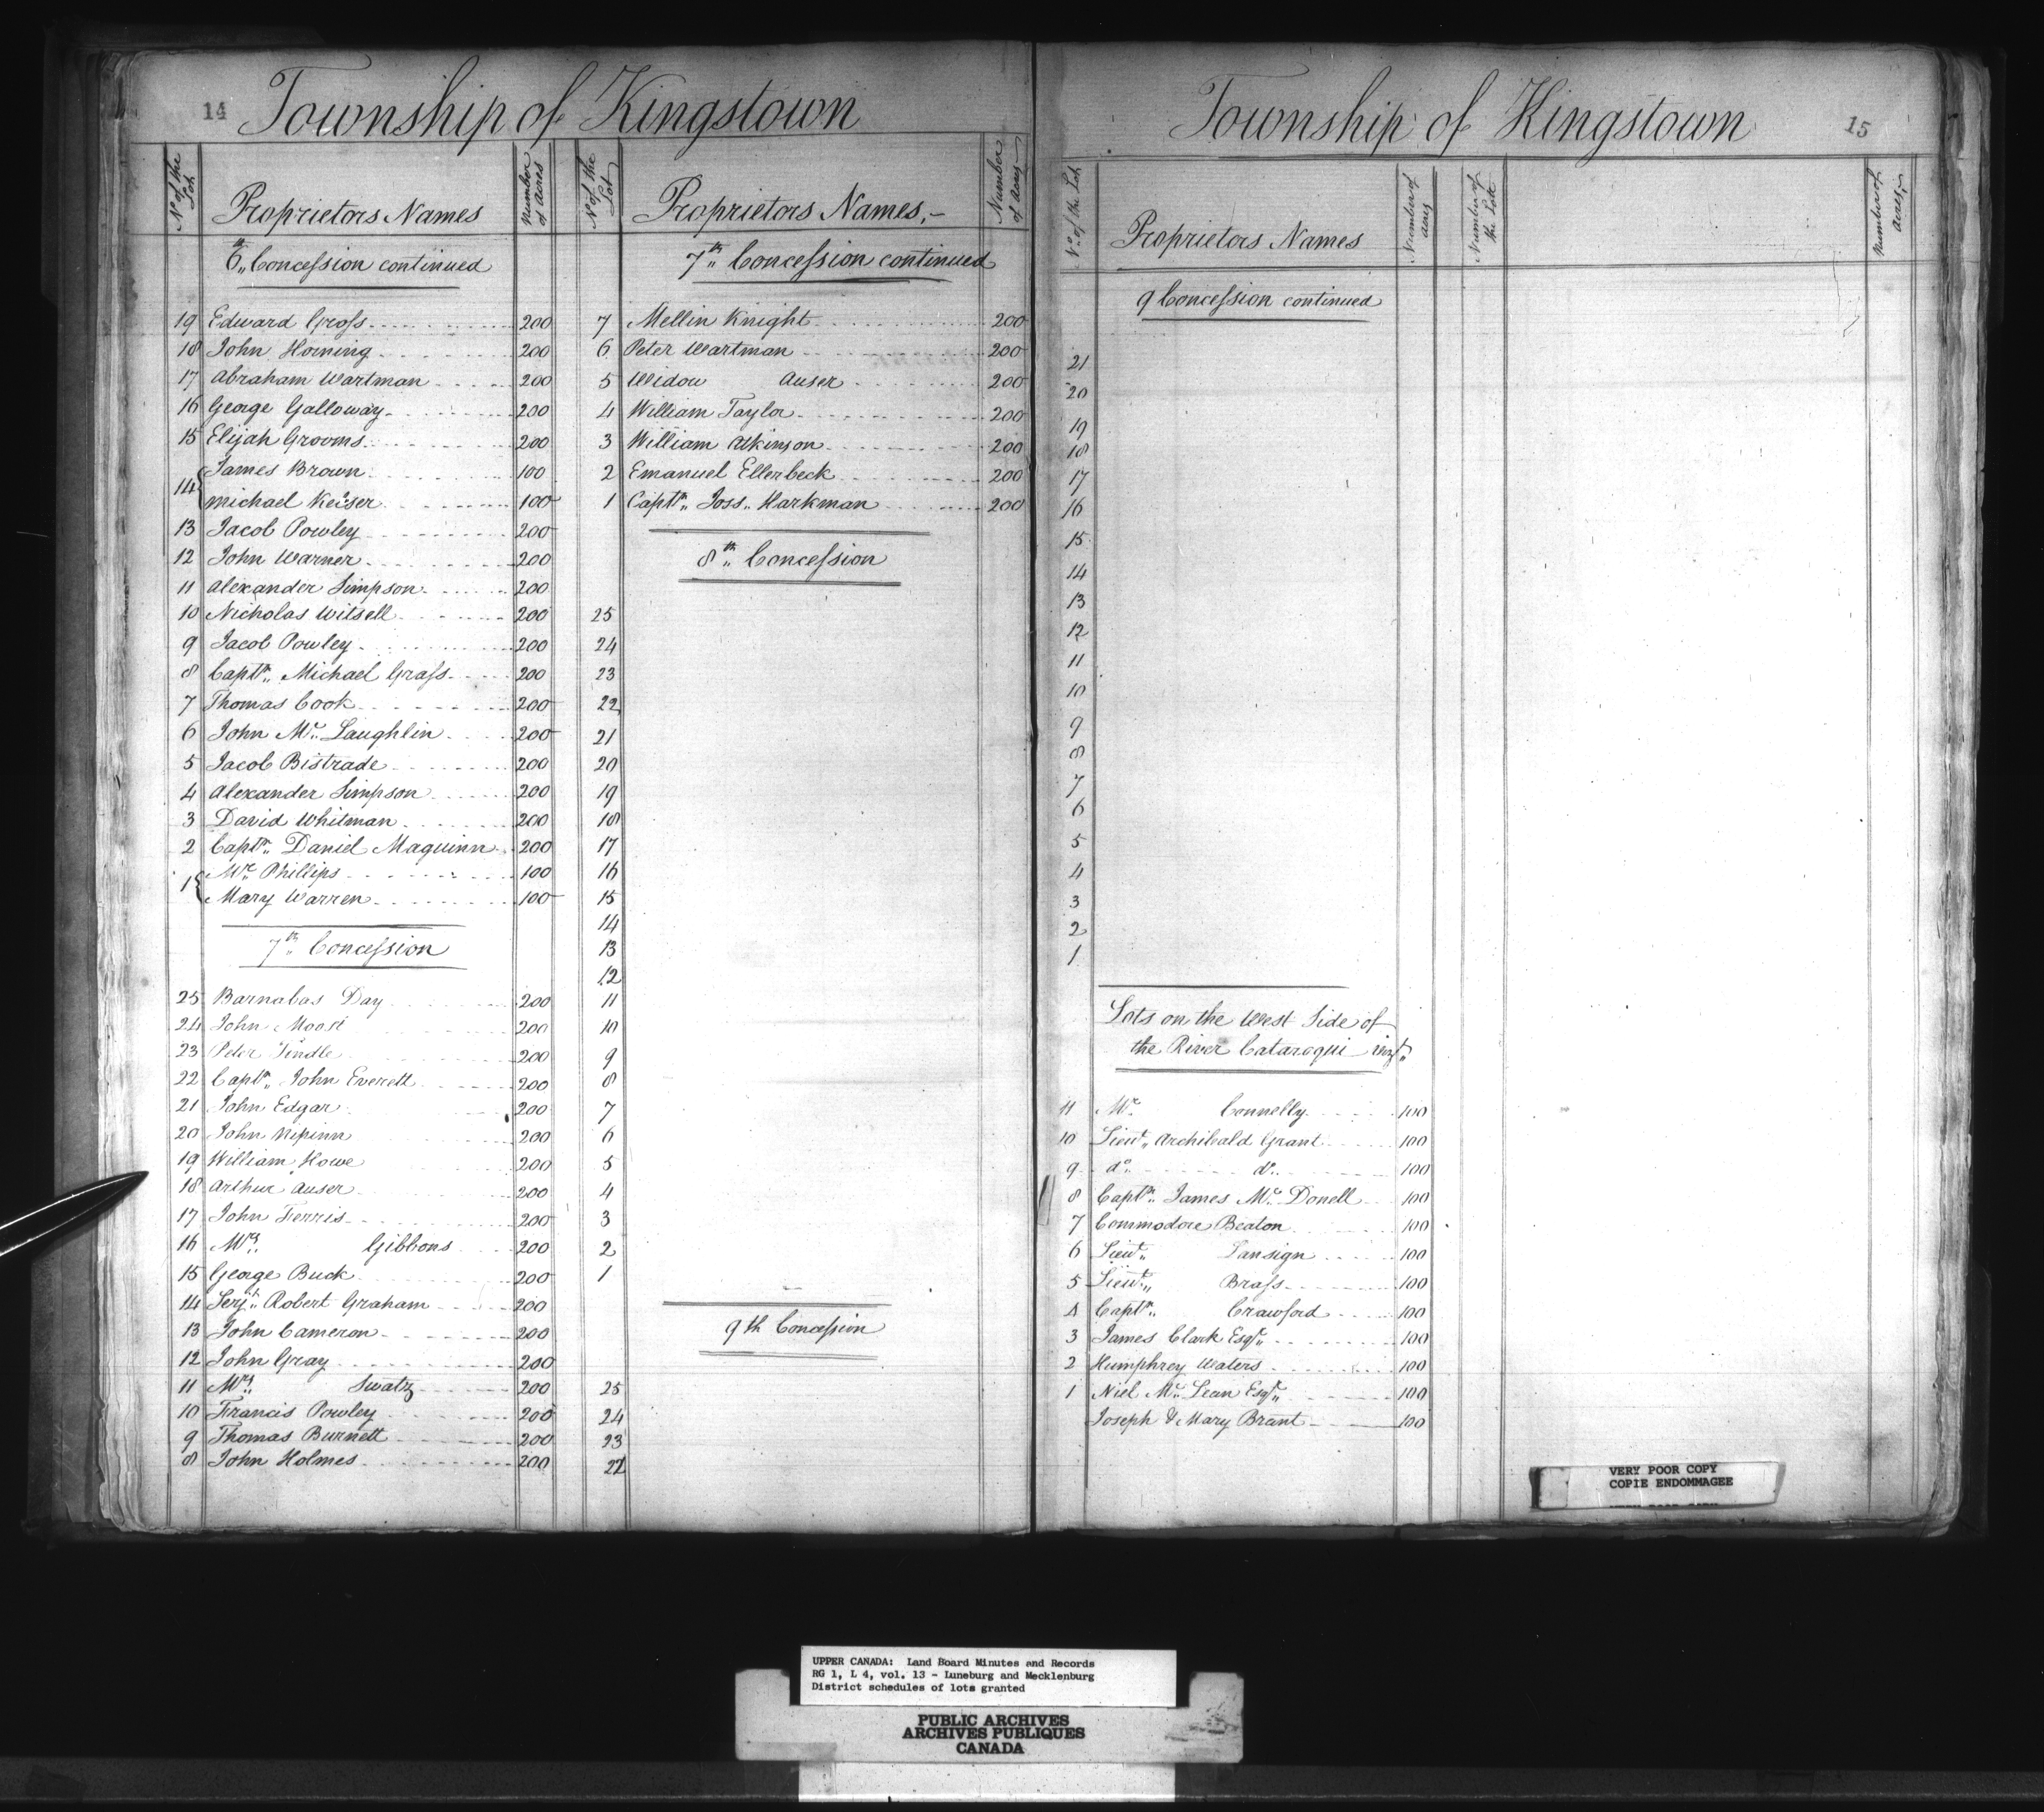 14
Township of Kingstown
No of the Lot
Proprietors Names
Number of acres
6th Concession continued
19 Edward Gross 200
18 John Horning 200
17 Abraham Wartman 200
16 George Galloway 200
15 Elijah Grooms 200
14 { James Brown 100
Michael Keiser 100
13 Jacob Powley 200
12 John Warner 200
11 Alexander Simpson 200
10 Nicholas Witsell 200
9 Jacob Powley 200
8 Captn Michael Grass 200
7 Thomas Cook 200
6 John Mc Laughlin 200
5 Jacob Bistrade 200
4 Alexander Simpson 200
3 David Whitman 200
2 Captn Daniel Maquinn 200
1 { Mr Phillips 100
Mary Warren 100
7th Concession
25 Barnabas Day 200
24 John Moore 200
23 Peter Tindle 200
22 Captn John Everett 200
21 John Edgar 200
20 John Kipinn 200
19 William Howe 200
18 Arthur Auser 200
17 John Ferris 200
16 Mrs Gibbons 200
15 George Buck 200
14 Serjt Robert Graham 200
13 John Cameron 200
12 John Gray 200
11 Mrs Swatz 200
10 Francis Powley 200
9 Thomas Burnett 200
8 John Holmes 200
No of the Lot
Proprietors Names,-
Number of acres
7th Concession continued
7 Mellin Knight 200
6 Peter Wartman 200
5 Widow Auser 200
4 William Taylor 200
3 William Atkinson 200
2 Emanuel Ellerbeck 200
1 Captn Joss Harkman 200
8th Concession
25
24
23
22
21
20
19
18
17
16
15
14
13
12
11
10
9
8
7
6
5
4
3
2
1
9th Concession
25
24
23
22
Township of Kingstown
15
No of the Lot
Proprietors Names
Number of acres
Number of the Lott
Number of acres
9 Concession continued
21
20
19
18
17
16
15
14
13
12
11
10
9
8
7
6
5
4
3
2
1
Lots on the West Side of
the River Cataraqui
11 Mr Connelly 100
10 Lieut Archibald Grant 100
9 do do 100
8 Captn James Mc Donell 100
7 Commodore Beaton 100
6 Lieut Lansign 100
5 Lieut Brass 100
4 Captn Crawford 100
3 James Clark Esqr 100
2 Humphrey Waters 100
1 Niel Mc Lean Esqr 100
Joseph & Mary Brant 100
VERY POOR COPY
COPIE ENDOMMAGEE
UPPER CANADA: Land Board Minutes and Records
RG 1, L 4, vol. 13 - Luneburg and Mecklenburg
District schedules of lots granted
PUBLIC ARCHIVES
ARCHIVES PUBLIQUES
CANADA